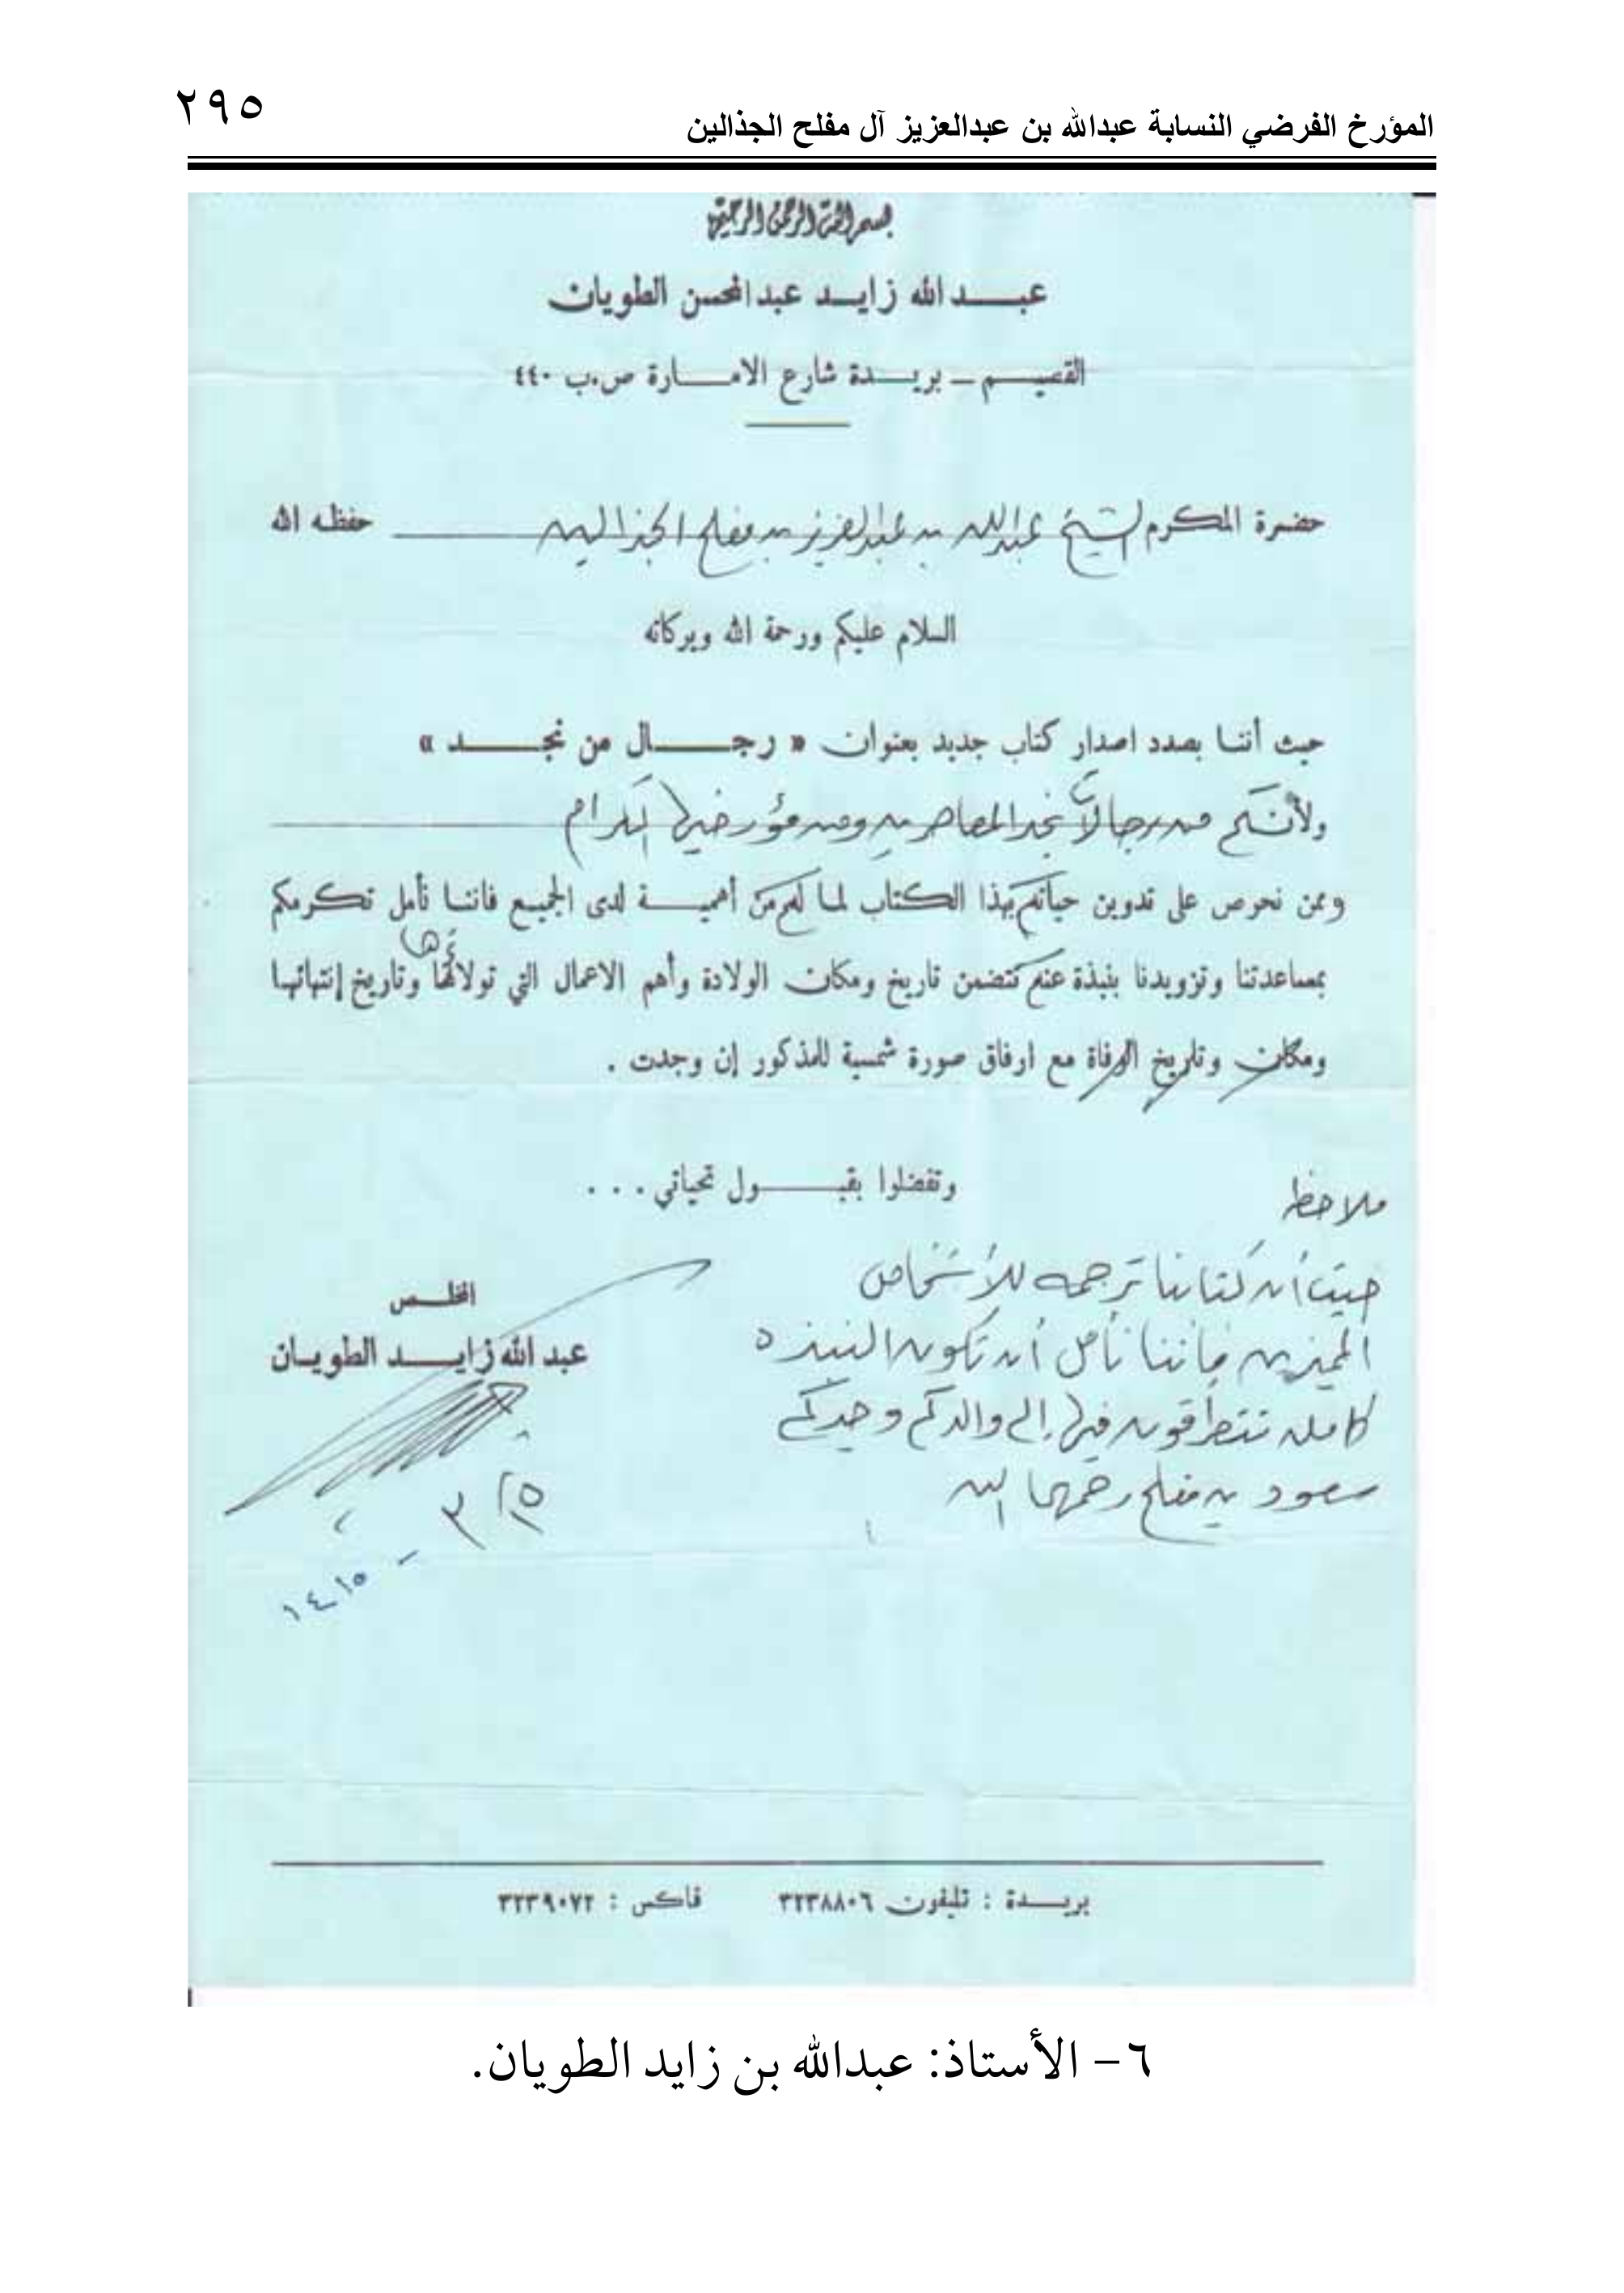 المؤرخ الفرضي النسابة عبدالله بن عبدالعزيز آل مفلح الجذالين
٢٩٥
بسم الله الرحمن الرحيم
عبد الله زايد عبد المحسن الطويان
القصيم - بريدة شارع الامارة ص.ب ٤٤٠
حضرة المكرم الشيخ عبدالله بن عبدالعزيز بن مفلح الجذالين حفظه الله
السلام عليكم ورحمة الله وبركاته
حيث أننا بصدد اصدار كتاب جديد بعنوان « رجال من نجد »
ولأنكم من رجالات نجد المعاصرين ومن مؤرخيها الكرام
وممن نحرص على تدوين حياتكم بهذا الكتاب لما لكم من أهمية لدى الجميع فاننا نأمل تكرمكم
بمساعدتنا وتزويدنا بنبذة عنكم تتضمن تاريخ ومكان الولادة وأهم الاعمال التي وتاريخ إنتهائها
ومكان وتاريخ الوفاة مع ارفاق صورة شمسية للمذكور إن وجدت .
وتفضلوا بقبول تحياتي . . .
ملاحظه
حيث أن كتابنا ترجمه للأشخاص
المميزين فإننا نأمل أن تكون النبذه
كامله تتطرقون فيها إلى والدكم وجدكم
سعود بن مفلح رحمهما الله
المخلص
عبد الله زايد الطويان
١٥/ ٣
١٤١٥
بريدة : تليفون ٣٢٣٨٨٠٦ فاكس : ٣٢٣٩٠٧٢
٦- الأستاذ: عبدالله بن زايد الطويان.